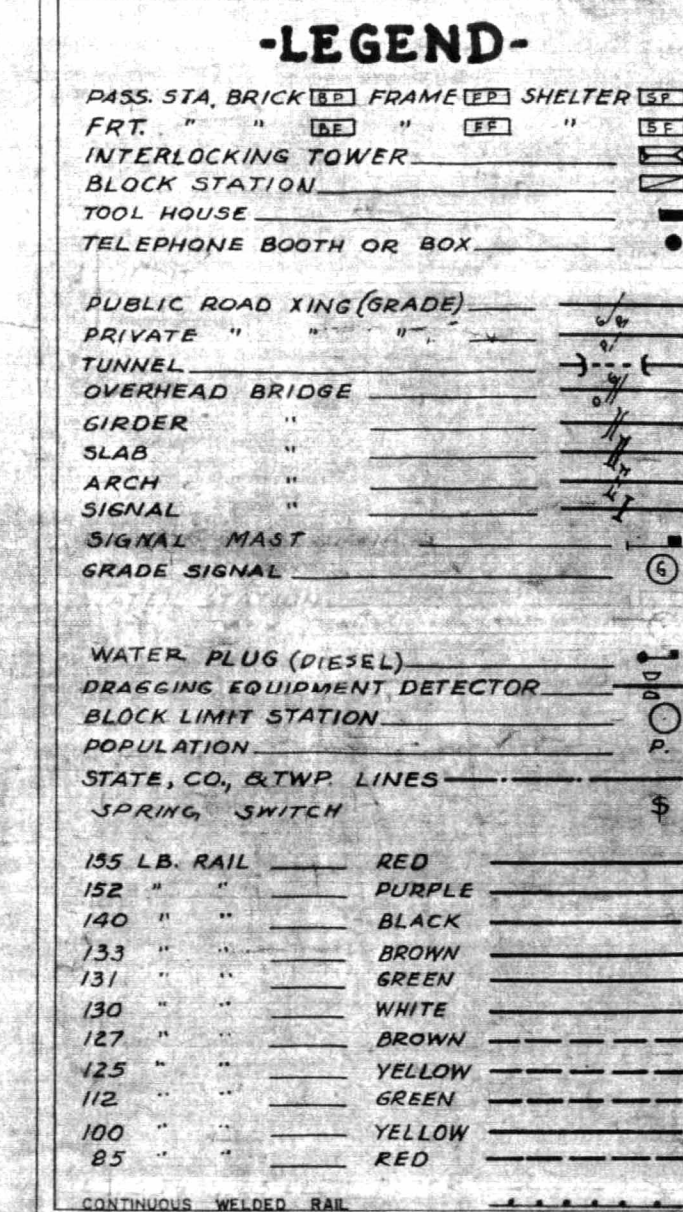 -LEGEND-
PASS. STA. BRICK BP FRAME FP SHELTER SP
FRT. " " BF " FF " SF
INTERLOCKING TOWER
BLOCK STATION
TOOL HOUSE
TELEPHONE BOOTH OR BOX
PUBLIC ROAD XING (GRADE)
PRIVATE " " "
TUNNEL
OVERHEAD BRIDGE
GIRDER "
SLAB "
ARCH "
SIGNAL "
SIGNAL MAST
GRADE SIGNAL G
WATER PLUG (DIESEL)
DRAGGING EQUIPMENT DETECTOR
BLOCK LIMIT STATION
POPULATION P.
STATE, CO., & TWP. LINES
SPRING SWITCH $
155 LB. RAIL RED
152 " " PURPLE
140 " " BLACK
133 " " BROWN
131 " " GREEN
130 " " WHITE
127 " " BROWN
125 " " YELLOW
112 " " GREEN
100 " " YELLOW
85 " " RED
CONTINUOUS WELDED RAIL